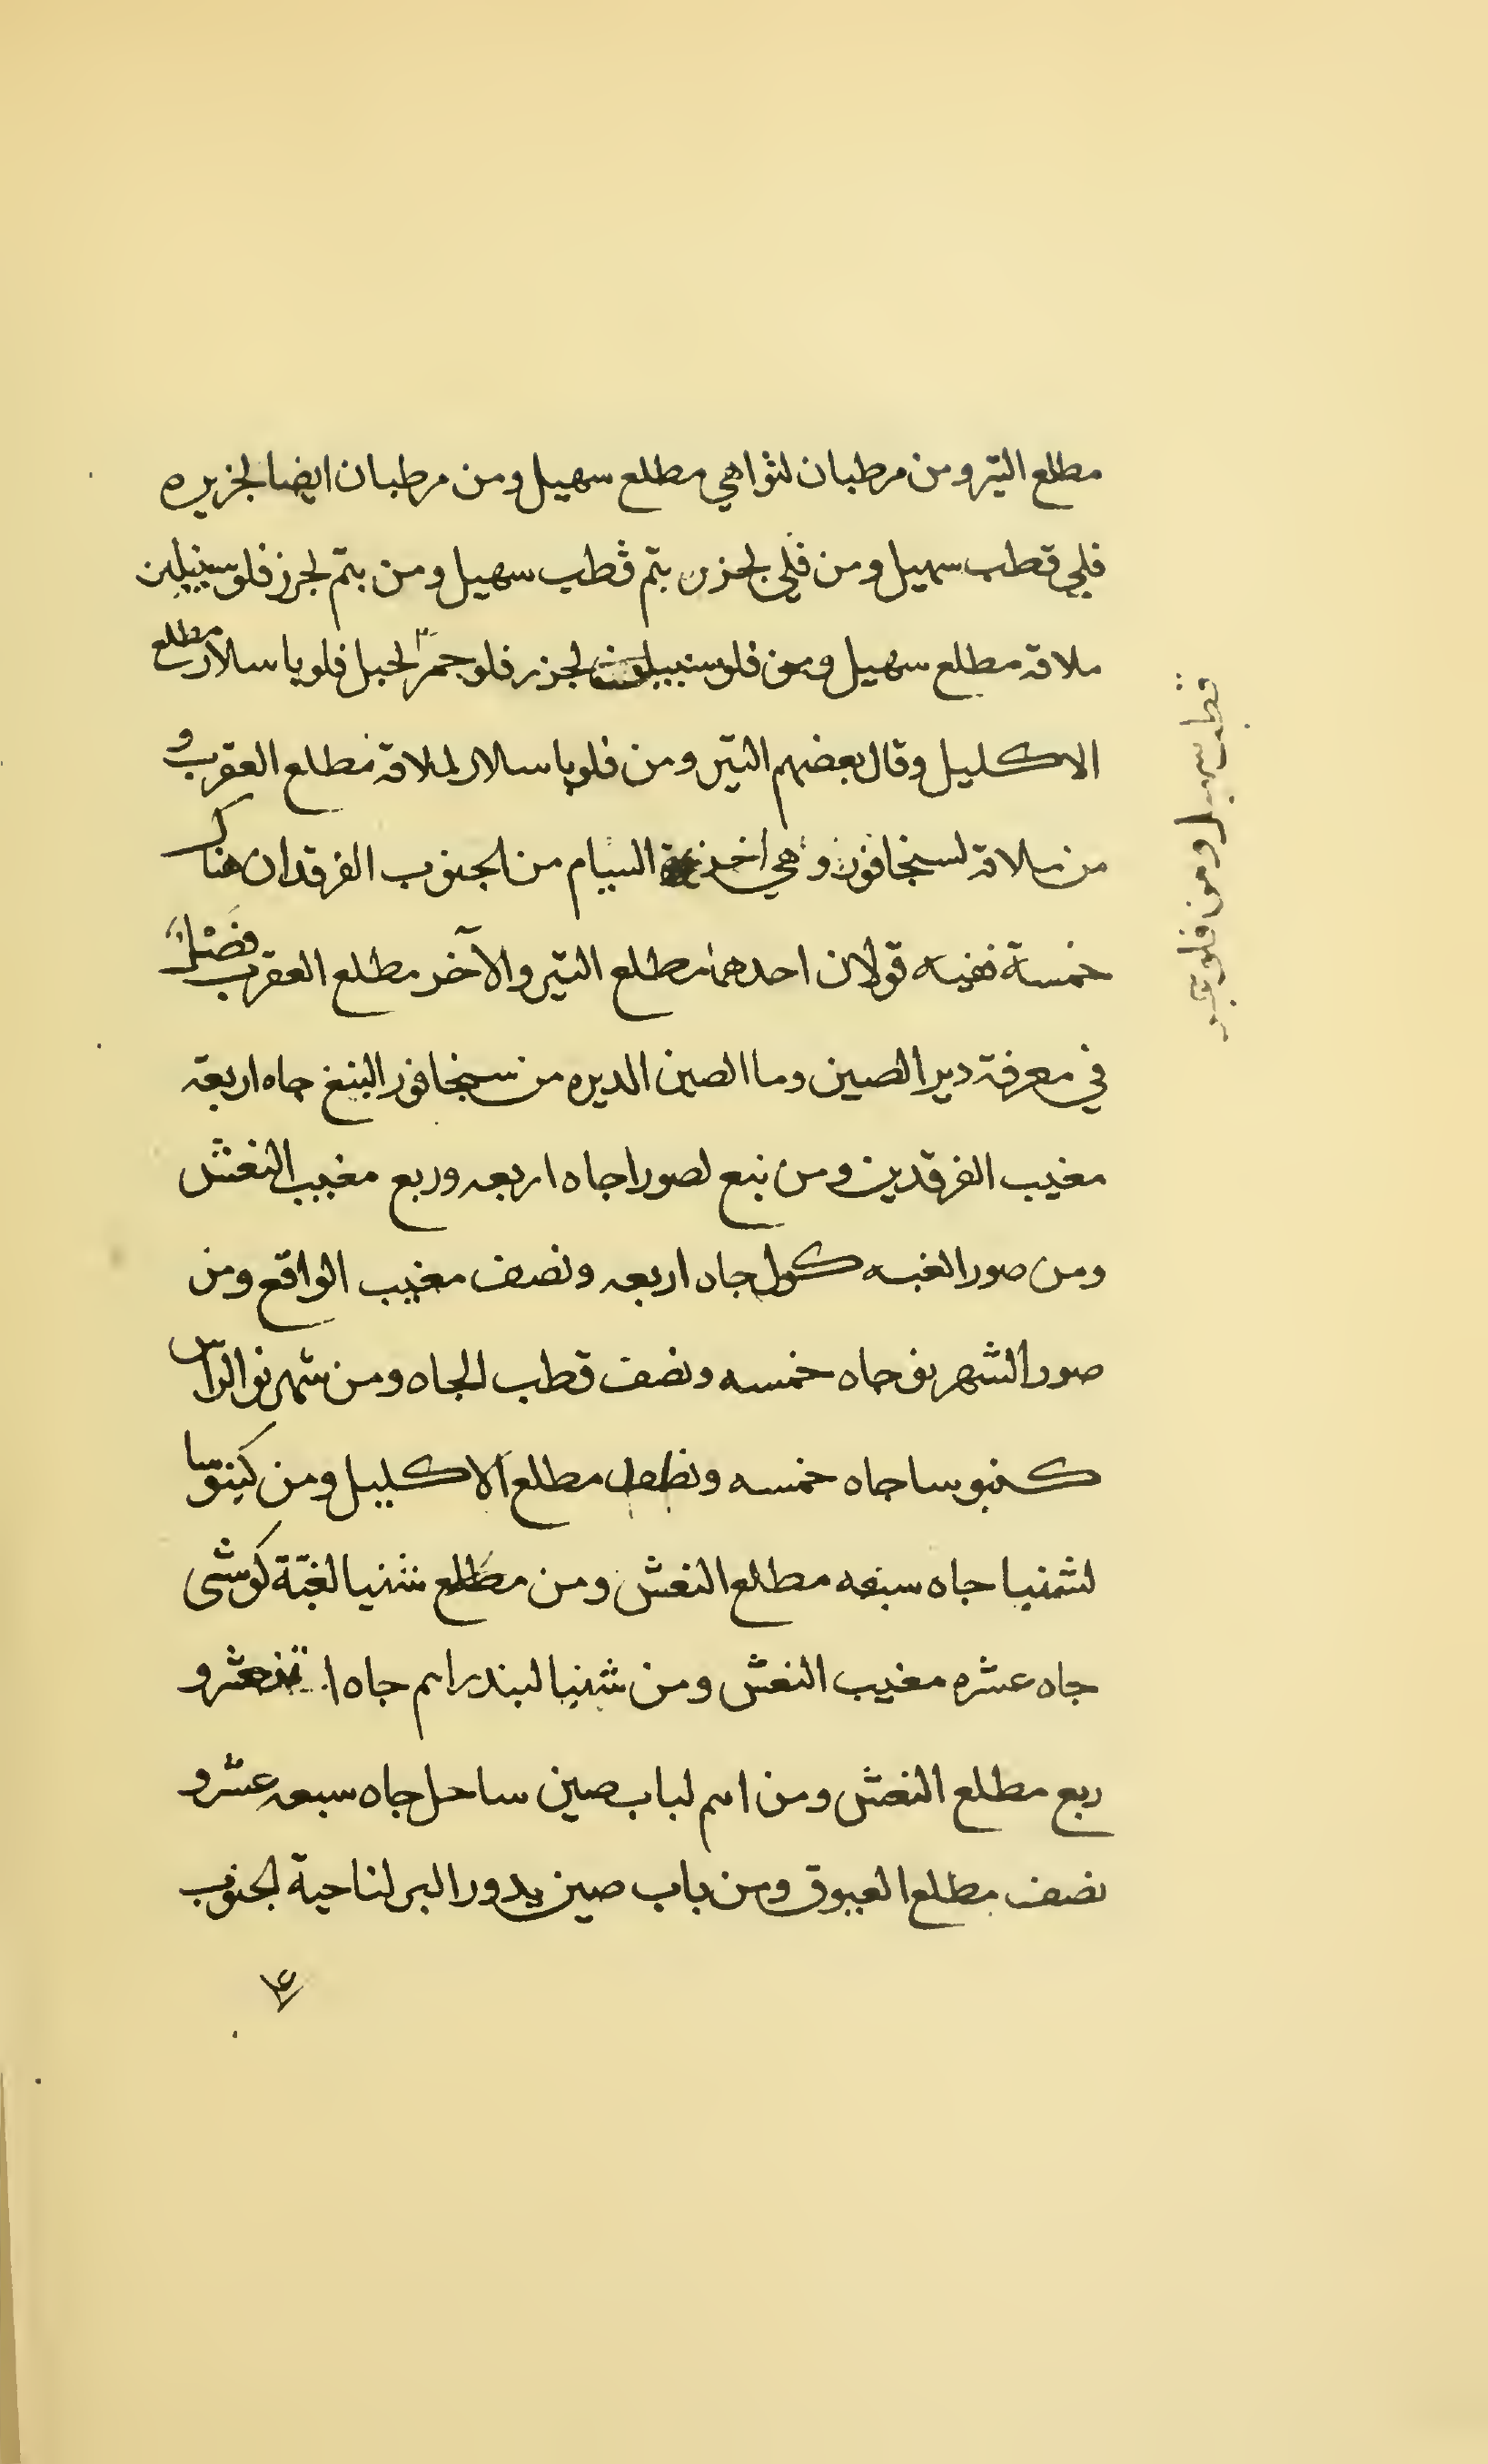 مطلع التير ومن مرطبان لثواهي مطلع سهيل ومن مرطبان ايضا لجزيره
فلي قطب سهيل ومن فلي لجزر بتم قطب سهيل ومن بتم لجزر فلو سنبيلن
ملاقة مطلع سهيل ومن فلو سنبيلن لجزر فلو جمر لجبل فلو باسالار مطلع
الاكليل وقال بعضهم التير ومن فلو باسالار لملاقة مطلع العقرب و
من ملاقة لسنجافور وهي اخر السيام من الجنوب الفرقدان هناك
خمسة ففيه قولان احدهما مطلع التير والآخر مطلع العقرب فصل
في معرفة دير الصين وما الصين الديره من سنجافور البنغ جاه اربعة
مغيب الفرقدين ومن بنع لصورا جاه اربعه وربع مغيب النعش
ومن صور الغبه كول جاه اربعه ونصف مغيب الواقع ومن
صور الشهرنو جاه خمسه ونصف قطب الجاه ومن شهرنو الراس
كنبوسا جاه خمسه ونصف مطلع الاكليل ومن كنبوسا
لشنبا جاه سبعه مطلع النعش ومن مطلع شنبا لغبة كوشي
جاه عشره مغيب النعش ومن شنبا لبندر اسم جاه عشر و
ربع مطلع النعش ومن اسم لباب صين ساحل جاه سبعه عشر و
نصف مطلع العيوق ومن باب صين يدور البر لناحية الجنوب
قطب سهيل ومن فلو